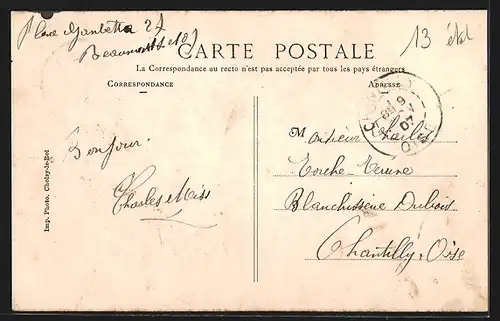 Place Gambetta 27
Beaumont s/o
13
CARTE POSTALE
La Correspondance au recto n'est pas acceptée par tous les pays étrangers
CORRESPONDANCE
ADRESSE
Bonjour
Charles Miss
Monsieur Charles
Torche
Blanchisserie Dubois
Chantilly. Oise
Imp. Photo. Choisy-le-Roi
OISE